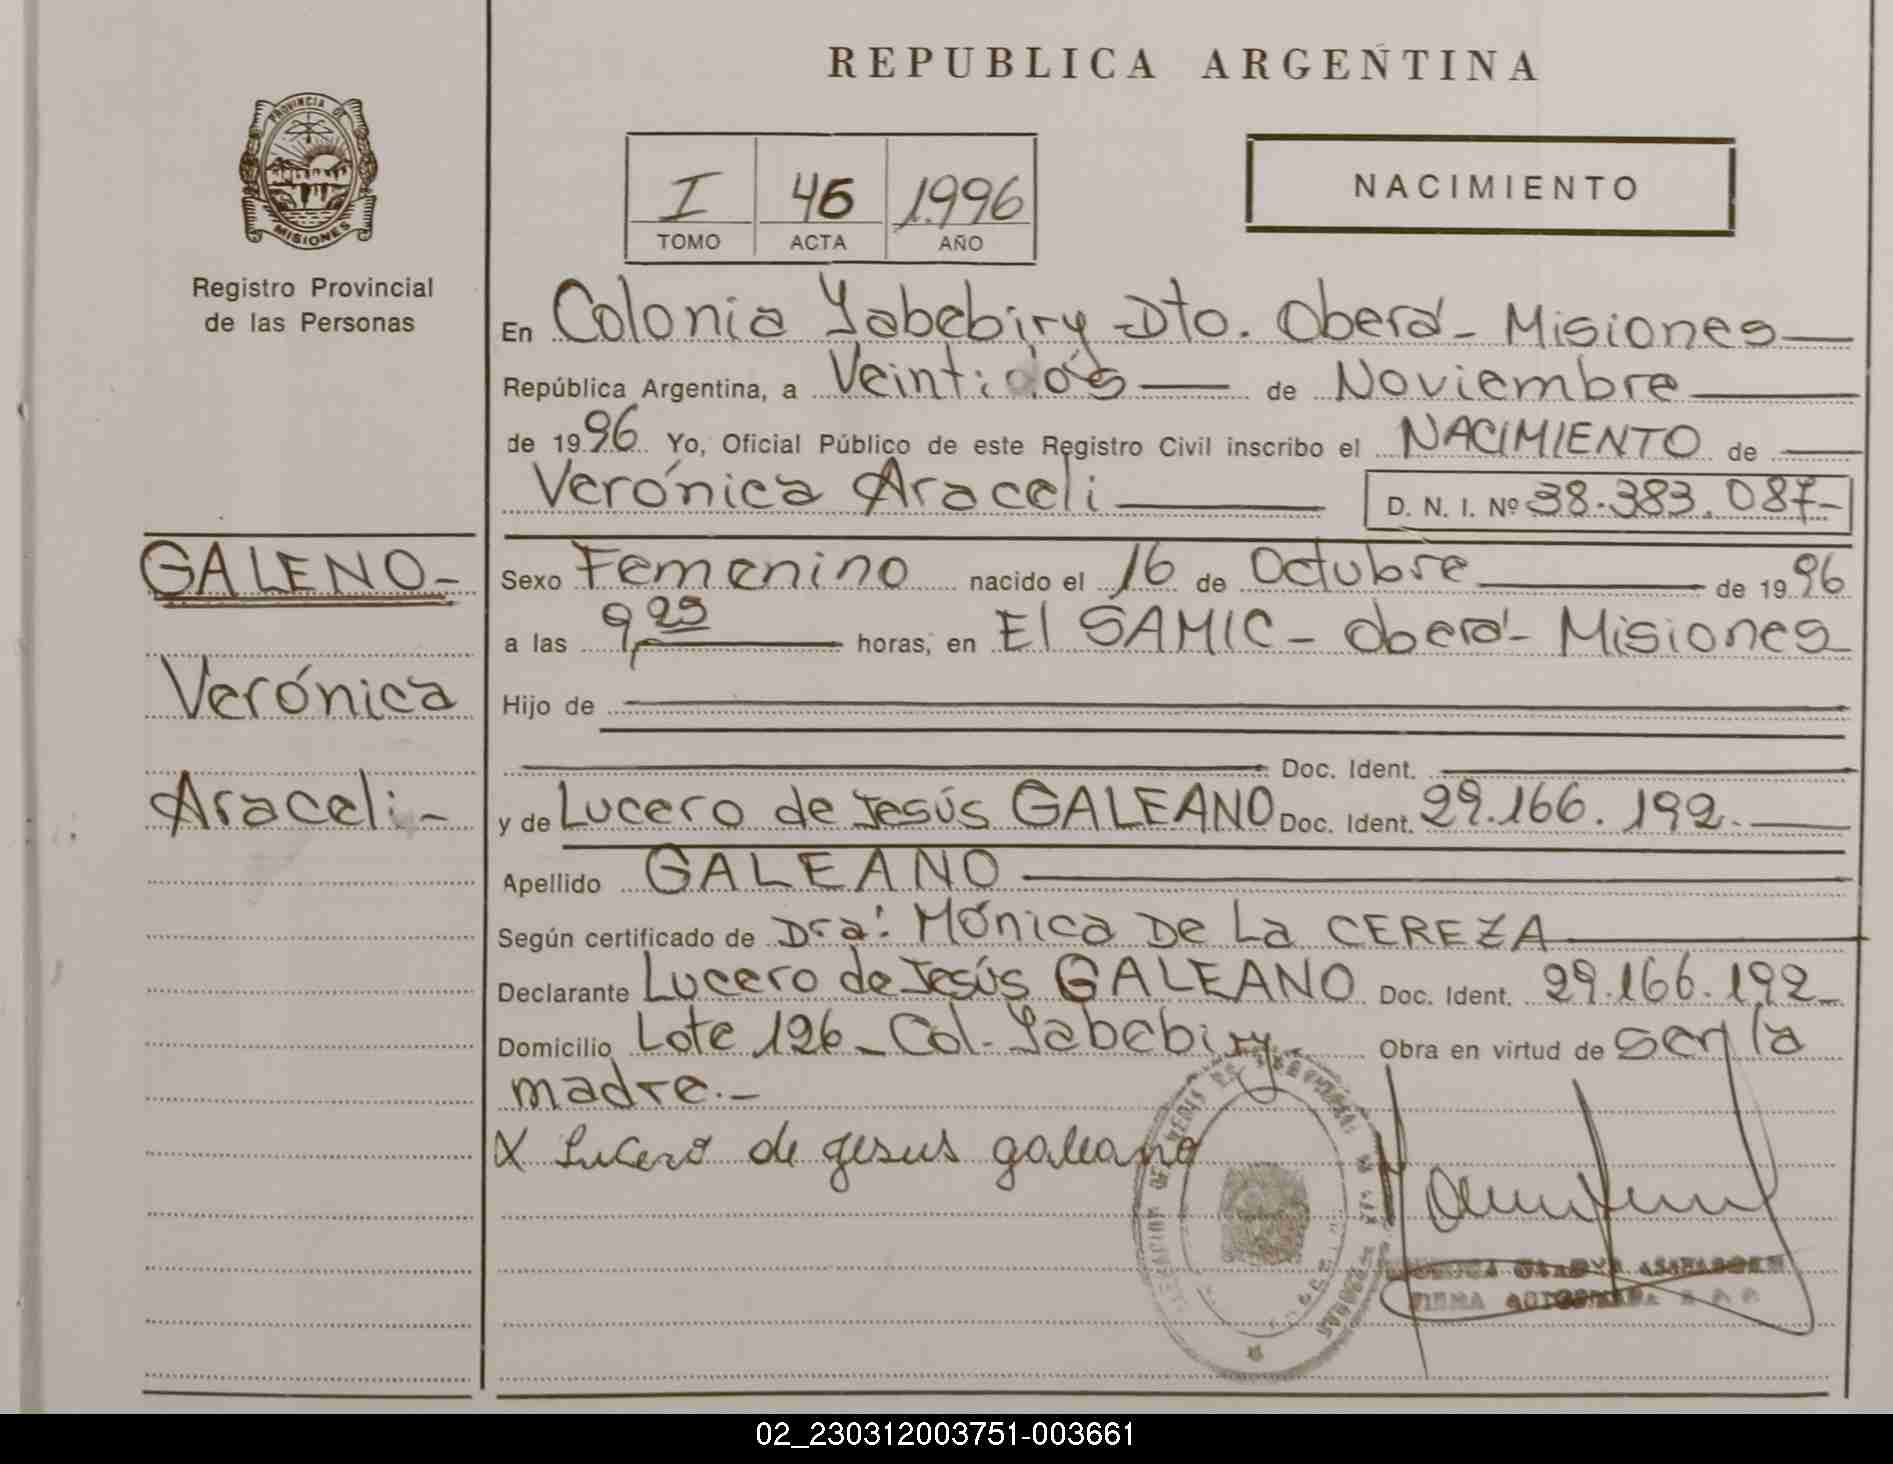 REPUBLICA ARGENTINA
PROVINCIA DE
MISIONES
Registro Provincial
de las Personas
I 46 1.996
TOMO ACTA AÑO
NACIMIENTO
En Colonia Yabebiry - Dto. Oberá - Misiones
República Argentina, a Veintidós de Noviembre
de 1996 Yo, Oficial Público de este Registro Civil inscribo el NACIMIENTO de
Verónica Araceli D. N. I. Nº 38.383.087-
GALENO-
Verónica
Araceli-
Sexo Femenino nacido el 16 de Octubre de 1996
a las 9,25 horas, en El SAMIC - Oberá - Misiones
Hijo de
Doc. Ident.
y de Lucero de Jesús GALEANO Doc. Ident. 29.166.192.
Apellido GALEANO
Según certificado de Dra: Mónica De La CEREZA
Declarante Lucero de Jesús GALEANO Doc. Ident. 29.166.192
Domicilio Lote 126 - Col. Yabebiry Obra en virtud de ser la
madre.-
X Lucero de jesus galeano
02_230312003751-003661